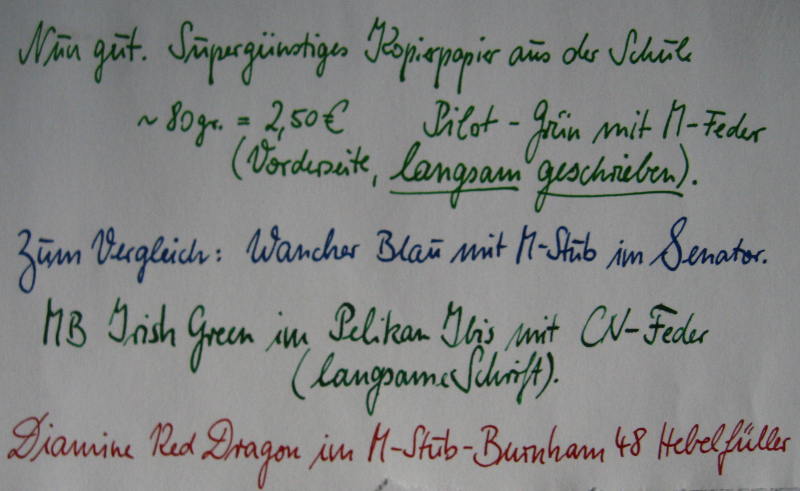 Nun gut. Supergünstiges Kopierpapier aus der Schule
~ 80gr. = 2,50€ Pilot - Grün mit M-Feder
(Vorderseite, langsam geschrieben).
Zum Vergleich: Wancher Blau mit M-Stub im Senator.
MB Irish Green im Pelikan Ibis mit CN-Feder
(langsame Schrift).
Diamine Red Dragon im M-Stub-Burnham 48 Hebelfüller